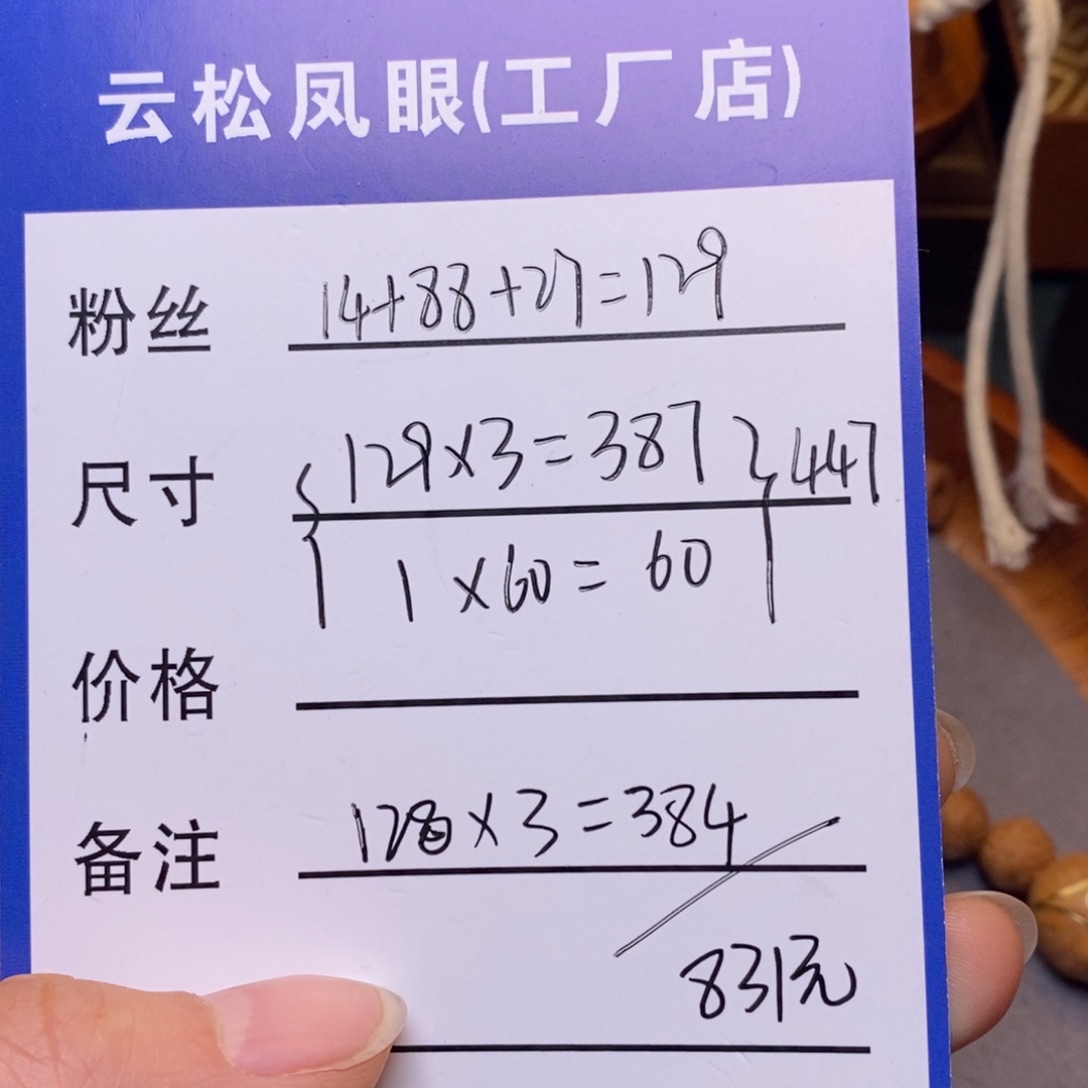 云松凤眼(工厂店)
粉丝 14+88+27=129
尺寸 129×3=387 } 447
1×60=60
价格
备注 128×3=384
831元